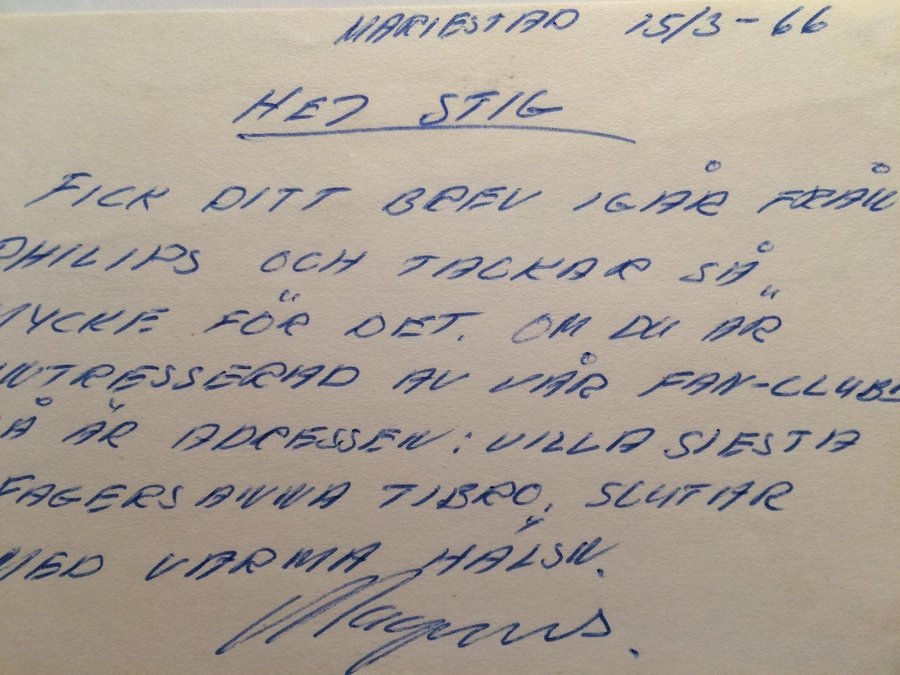 MARIESTAD 15/3-66
HEJ STIG
FICK DITT BREV IGÅR FRÅN
PHILIPS OCH TACKAR SÅ
MYCKE FÖR DET. OM DU ÄR
INTRESSERAD AV VÅR FAN-CLUB
SÅ ÄR ADRESSEN: VILLA SIESTA
FAGERSANNA TIBRO, SLUTAR
MED VARMA HÄLSN.
Magnus.